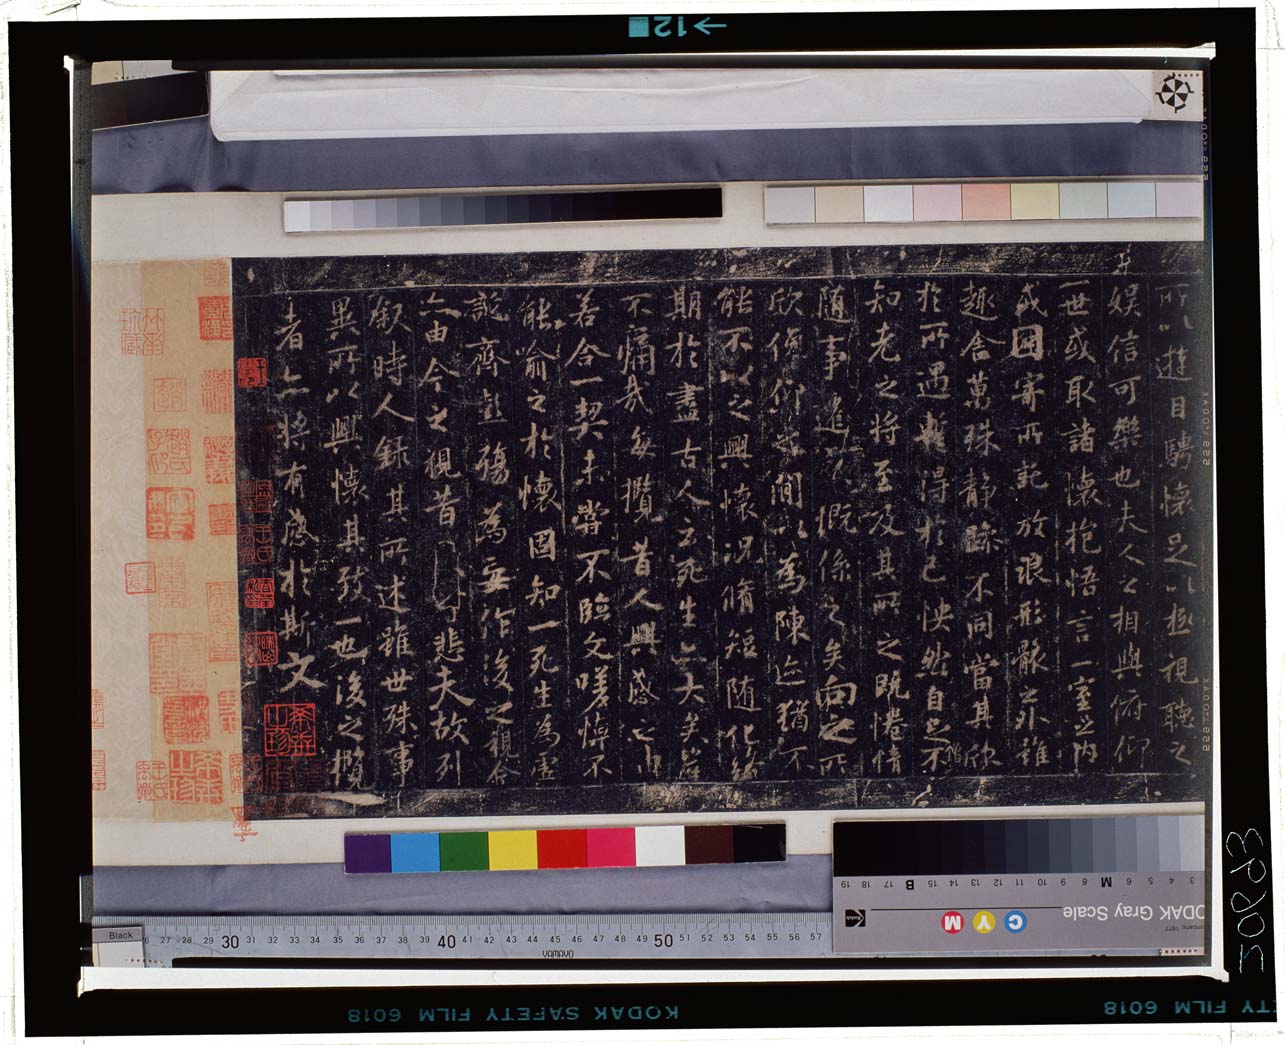 12
所以遊目騁懷足以極視聽之
娛信可樂也夫人之相與俯仰
一世或取諸懷抱悟言一室之內
或因寄所託放浪形骸之外雖
趣舍萬殊靜躁不同當其欣
於所遇暫得於己怏然自足不
知老之將至及其所之既惓情
隨事遷感慨係之矣向之所
欣俛仰之間以為陳迹猶不
能不以之興懷況脩短隨化終
期於盡古人云死生亦大矣豈
不痛哉每攬昔人興感之由
若合一契未嘗不臨文嗟悼不
能喻之於懷固知一死生為虛
誕齊彭殤為妄作後之視今
亦由今之視昔悲夫故列
敘時人錄其所述雖世殊事
異所以興懷其致一也後之攬
者亦將有感於斯文
19 18 17 B 15 14 13 12 11 10 9 8 M 6 5 4 3
KODAK Gray Scale
C Y M
Kodak
Black
27 28 29 30 31 32 33 34 35 36 37 38 39 40 41 42 43 44 45 46 47 48 49 50 51 52 53 54 55 56 57
KODAK SAFETY FILM 6018
TY FILM 6018